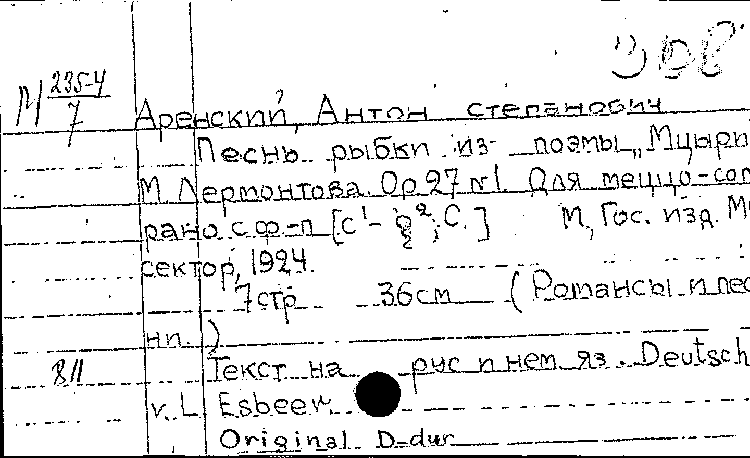 М 235-4
7
Аренский, Антон Степанович
Песнь рыбки из поэмы „Мцыри
М. Лермонтова. Op 27 N1. Для меццо-соп
рано с ф-п [c¹- g²; C.] М, Гос. изд. Му
сектор, 1924.
7 стр 36 см (Романсы и пес
ни.)
811 Текст на рус и нем яз. Deutsch
v. L. Esbeer.
Original D-dur